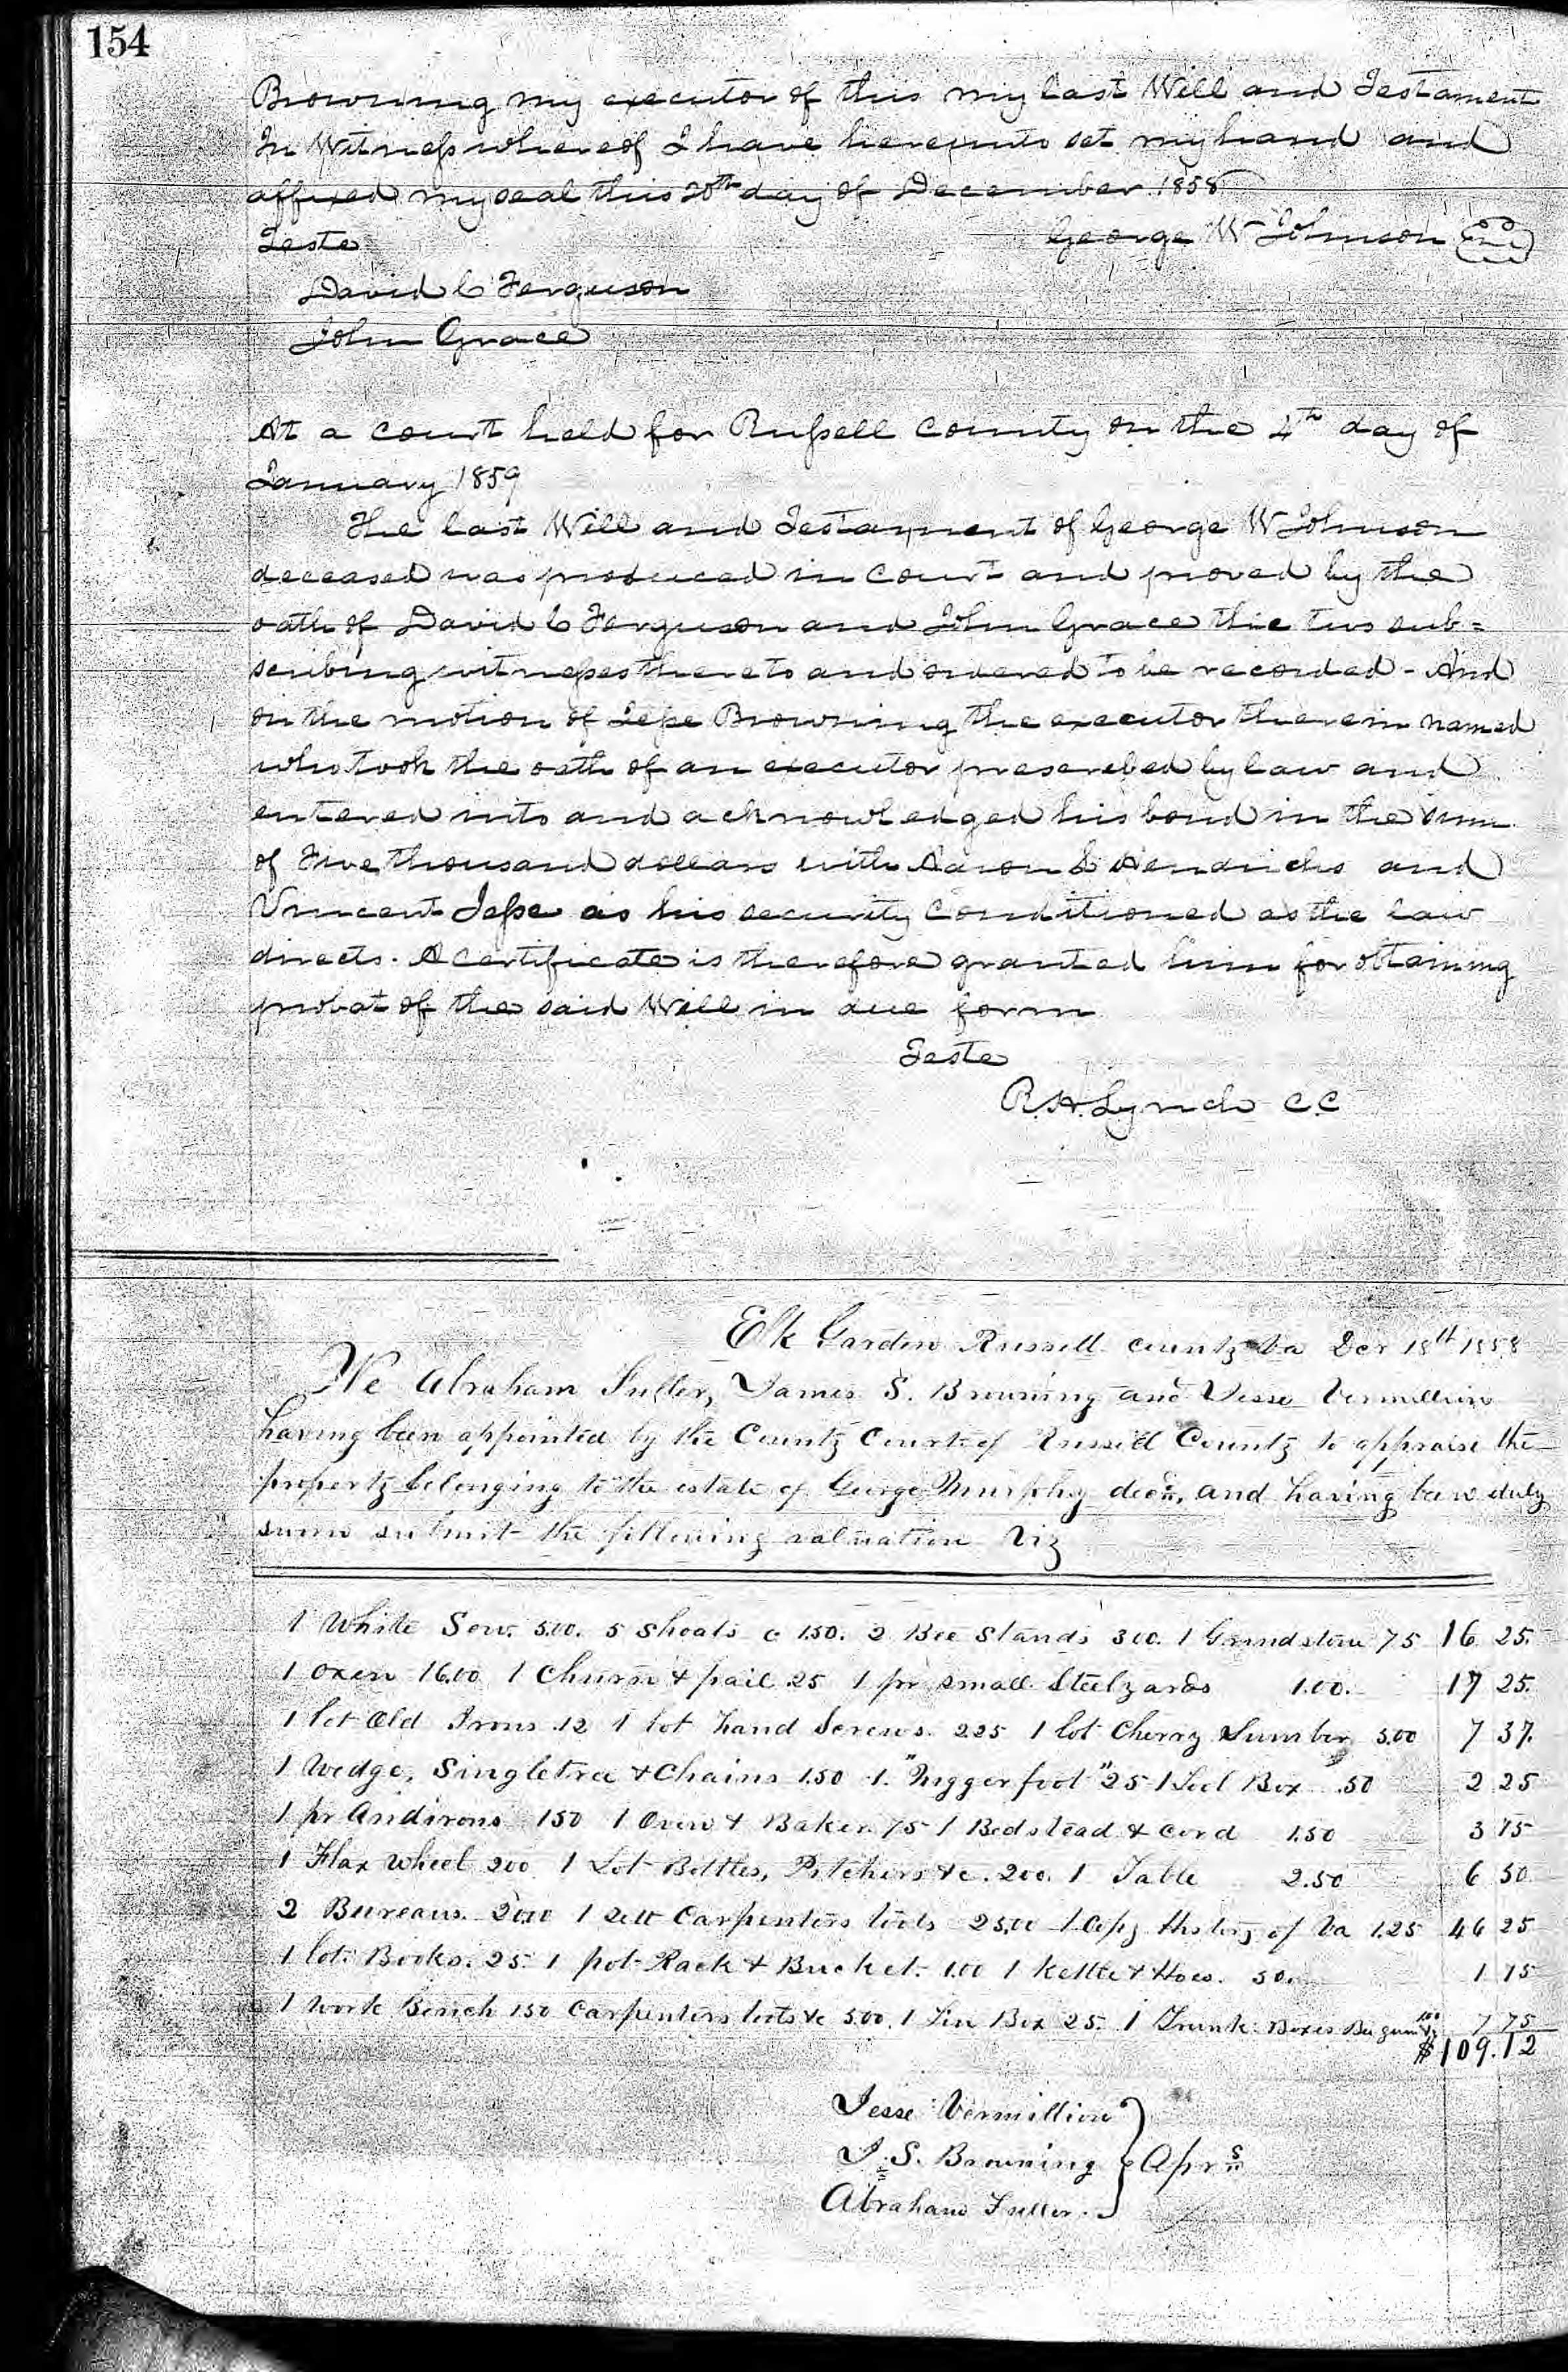 154
Browning my executor of this my last Will and Testament
In Witness whereof I have hereunto set my hand and
affixed my seal this 20th day of December 1858
Teste George W Johnson
David C Ferguson
John Grace
At a court held for Russell County on the 4th day of
January 1859
The last Will and Testament of George W Johnson
deceased was produced in Court and proved by the
oath of David C Ferguson and John Grace the two sub=
scribing witnesses thereto and ordered to be recorded - And
on the motion of Jesse Browning the executor therein named
who took the oath of an executor prescribed by law and
entered into and acknowledged his bond in the sum
of Five thousand dollars with Aaron L Hendricks and
Vincent Jesse as his security conditioned as the law
directs. A certificate is therefore granted him for obtaining
probat of the said Will in due form
Teste
R.H. Lynch C.C
Elk Garden Russell County Va Decr 18th 1858
We Abraham Fuller, James S. Browning and Jesse Vermillion
having been appointed by the County Court of Russell County to appraise the
property belonging to the estate of George Murphy decd, and having been duly
sworn submit the following valuation Viz
1 White Sow. 5.00. 5 Shoats @ 1.50. 2 Bee Stands 3.00. 1 Grindstone 75 16 25.
1 Oxen 16.00 1 Churn & pail .25 1 pr small Steelyards 1.00. 17 25.
1 lot Old Irons .12 1 lot hand Screws. 2.25 1 lot Cherry Lumber 5.00 7 37.
1 Wedge, Singletree & Chains 1.50 1. "Niggerfoot" 25 1 Tool Box .50 2 25
1 pr Andirons 1.50 1 Oven & Baker. 75 1 Bedstead & cord 1.50 3 75
1 Flax Wheel 2.00 1 Lot Bottles, Pitchers &c. 2.00. 1 Table 2.50 6 50
2 Bureaus. 20.00 1 Sett Carpenters tools 25.00 1 Copy History of Va 1.25 46 25
1 lot. Books. 25. 1 pot Rack & Bucket. 1.00 1 Kettle & Hoes. 50. 1 75
1 Work Bench 1.50 Carpenters tools &c 5.00. 1 Tin Box 25. 1 Trunk. Boxes Bee gum &c 1.00 7 75
$109.12
Jesse Vermillion
J. S. Browning Aprs
Abraham Fuller.